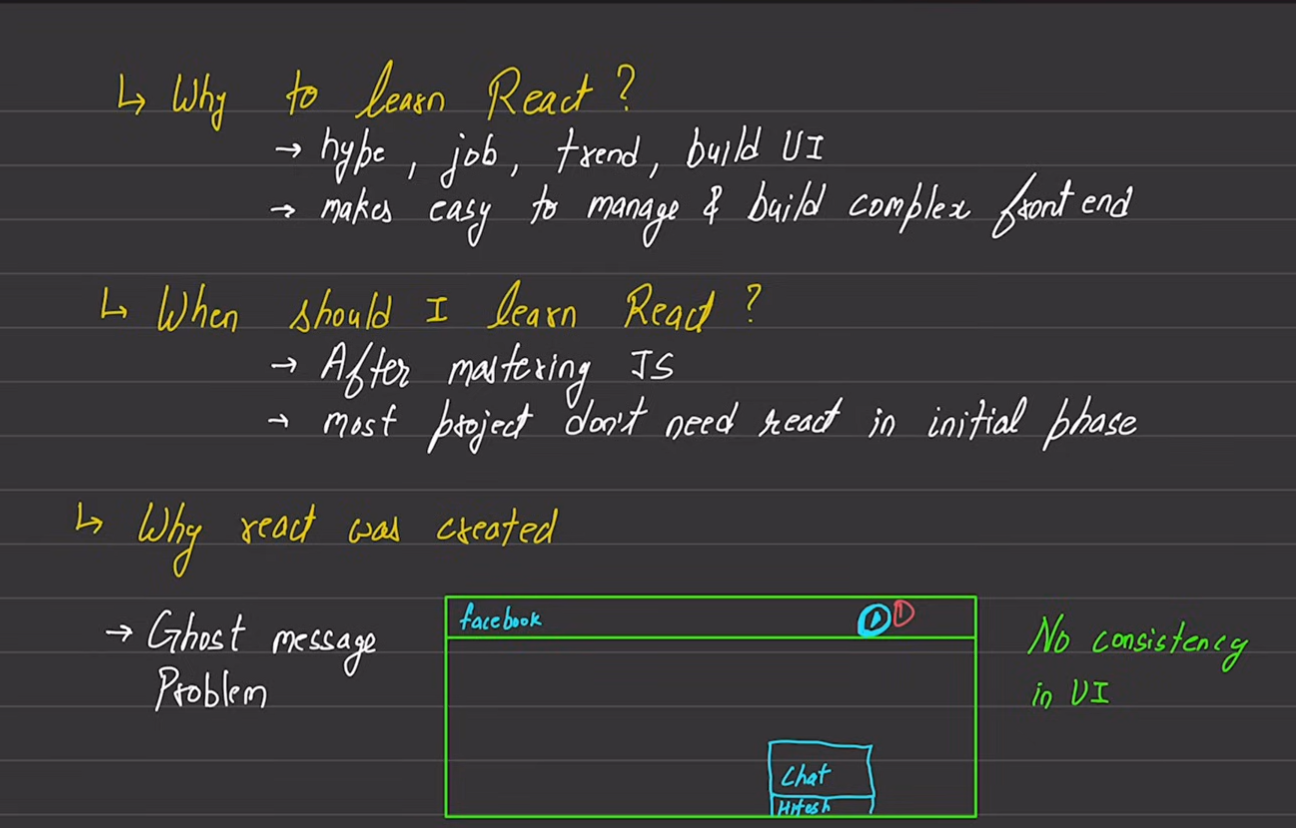 ↳ Why to learn React?
→ hype, job, trend, build UI
→ makes easy to manage & build complex front end
↳ When should I learn React?
→ After mastering JS
→ most project don't need react in initial phase
↳ Why react was created
→ Ghost message
Problem
facebook 1
No consistency
in UI
Chat
Hitesh